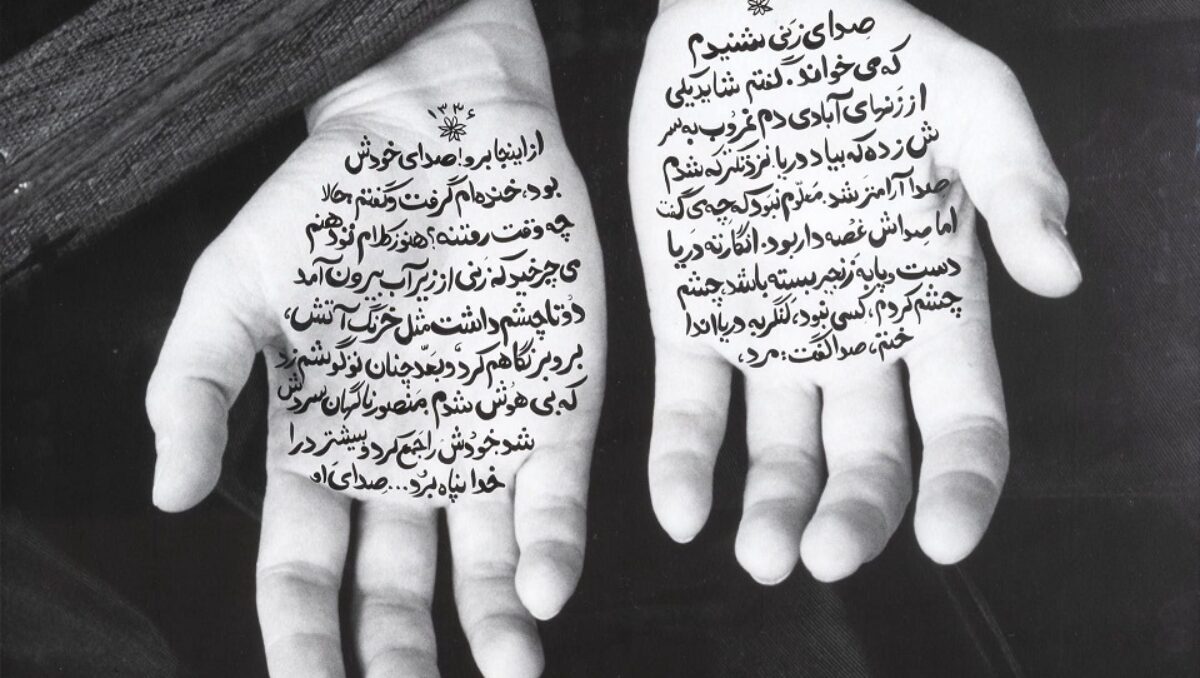 صدای زنی شنیدم
که می خواند. گفتم شاید یکی
از زنهای آبادی دم غروب به سر
ش زده که بیاد دریا. نزدیکتر که شدم
صدا آرامتر شد. معلوم نبود که چه می گفت
اما صداش غصه دار بود. انگار ته دریا
دست و پا به زنجیر بسته باشد، چشم
چشم کردم، کسی نبود، لنگر به دریا اندا
ختم، صدا گفت: مرد،
۱۳۳۶
از اینجا برو! صدای خودش
بود، خنده ام گرفت و گفتم حالا
چه وقت رفتنه؟ هنوز کلام تو دهنم
می چرخید که زنی از زیر آب بیرون آمد
دو تا چشم داشت مثل خرنگ آتش،
بر و بر نگاهم کرد و بعد چنان تو گوشم زد
که بی هوش شدم. منصور ناگهان سردش
شد خودش را جمع کرد و بیشتر درا
خدا پناه برد... صدای او